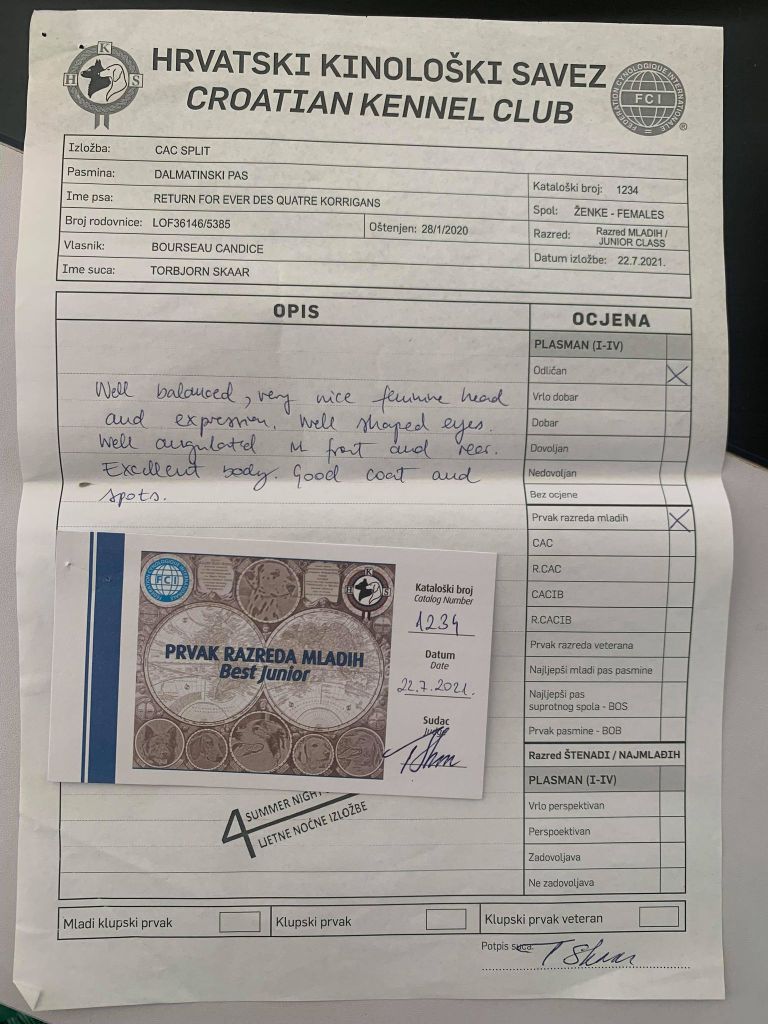 HRVATSKI KINOLOŠKI SAVEZ
CROATIAN KENNEL CLUB
H K S
FEDERATION CYNOLOGIQUE INTERNATIONALE
FCI
®
Izložba: CAC SPLIT
Pasmina: DALMATINSKI PAS
Ime psa: RETURN FOR EVER DES QUATRE KORRIGANS
Broj rodovnice: LOF36146/5385
Oštenjen: 28/1/2020
Vlasnik: BOURSEAU CANDICE
Ime suca: TORBJORN SKAAR
Kataloški broj: 1234
Spol: ŽENKE - FEMALES
Razred: Razred MLADIH /
JUNIOR CLASS
Datum izložbe: 22.7.2021.
OPIS
Well balanced, very nice feminine head
and expression. Well shaped eyes.
Well angulated in front and rear.
Excellent body. Good coat and
spots.
OCJENA
PLASMAN (I-IV)
Odličan X
Vrlo dobar
Dobar
Dovoljan
Nedovoljan
Bez ocjene
Prvak razreda mladih X
CAC
R.CAC
CACIB
R.CACIB
Prvak razreda veterana
Najljepši mladi pas pasmine
Najljepši pas
suprotnog spola - BOS
Prvak pasmine - BOB
Razred ŠTENADI / NAJMLAĐIH
PLASMAN (I-IV)
Vrlo perspektivan
Perspoektivan
Zadovoljava
Ne zadovoljava
FCI
H K S
PRVAK RAZREDA MLADIH
Best Junior
Kataloški broj
Catalog Number
1234
Datum
Date
22.7.2021.
Sudac
Judge
T Skaar
4 SUMMER NIGHT
LJETNE NOĆNE IZLOŽBE
Mladi klupski prvak
Klupski prvak
Klupski prvak veteran
Potpis suca:
T Skaar